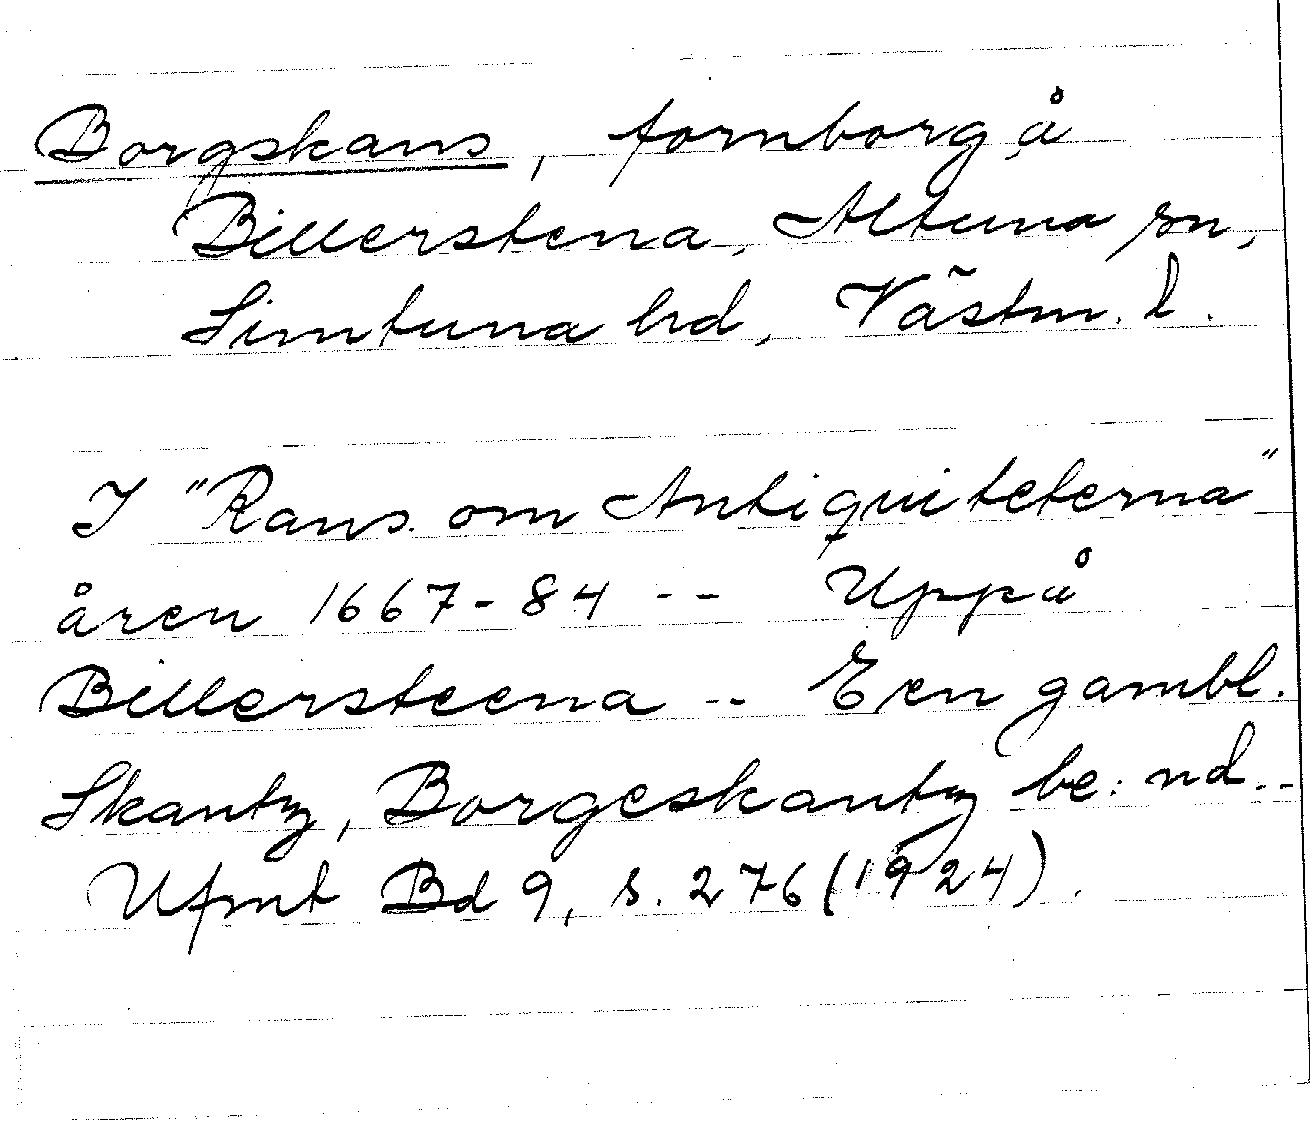 Borgskans, fornborg å
Billerstena, Altuna sn,
Simtuna hd, Västm. l.
I "Rans. om Antiquiteterna"
åren 1667-84 -- Uppå
Billersteena -- Een gambl.
Skantz, Borgeskantz be: nd. --
Ufmt Bd 9, s. 276 (1924).